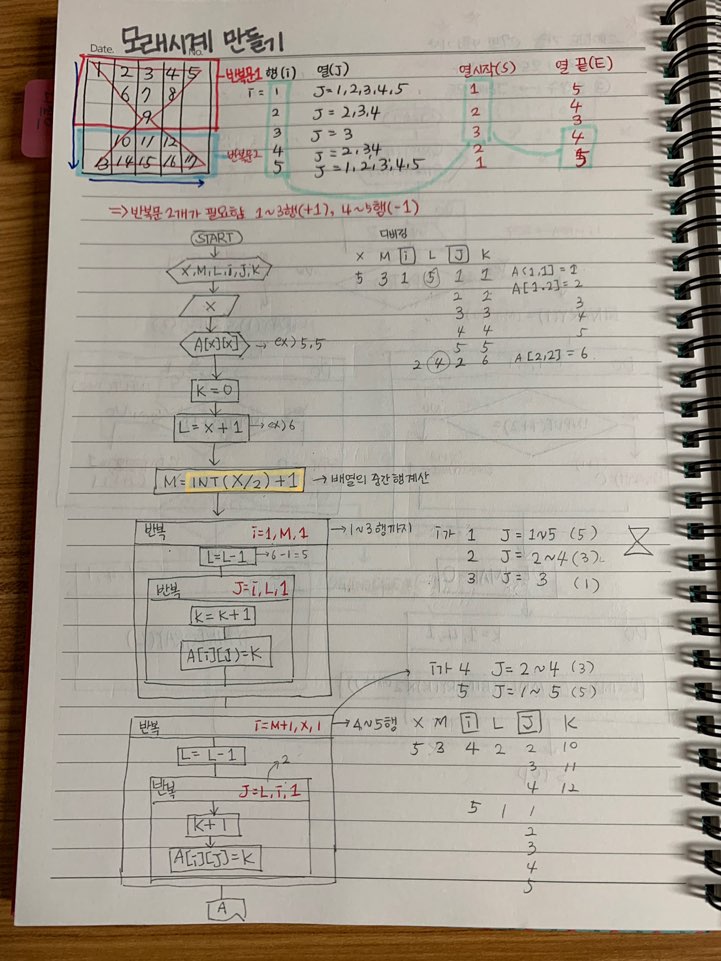 Date. 모래시계 만들기
No.
1 2 3 4 5 반복문1 행(i) 열(J) 열시작(S) 열 끝(E)
6 7 8 i = 1 J = 1,2,3,4,5 1 5
9 2 J = 2,3,4 2 4
3 J = 3 3 3
10 11 12 반복문2 4 J = 2,3,4 2 4
13 14 15 16 17 5 J = 1,2,3,4,5 1 5
=> 반복문 2개가 필요함 1~3행(+1), 4~5행(-1)
START
X,M,L,i,J,K
X
A[X][X] → ex) 5,5
K=0
L=X+1 → ex) 6
M=INT(X/2)+1 → 배열의 중간행계산
디버깅
X M i L J K
5 3 1 5 1 1 A(1,1] = 1
2 2 A[1,2] = 2
3 3 3
4 4 4
5 5 5
2 4 2 6 A[2,2] = 6
반복 i=1,M,1 → 1~3행까지
L=L-1 → 6-1=5
반복 J=i,L,1
K=K+1
A[i][J]=K
i가 1 J=1~5 (5)
2 J= 2~4 (3)
3 J= 3 (1)
i가 4 J=2~4 (3)
5 J=1~5 (5)
반복 i=M+1,X,1 → 4~5행
L=L-1
2
반복 J=L,i,1
K+1
A[i][J]=K
A
X M i L J K
5 3 4 2 2 10
3 11
4 12
5 1 1
2
3
4
5